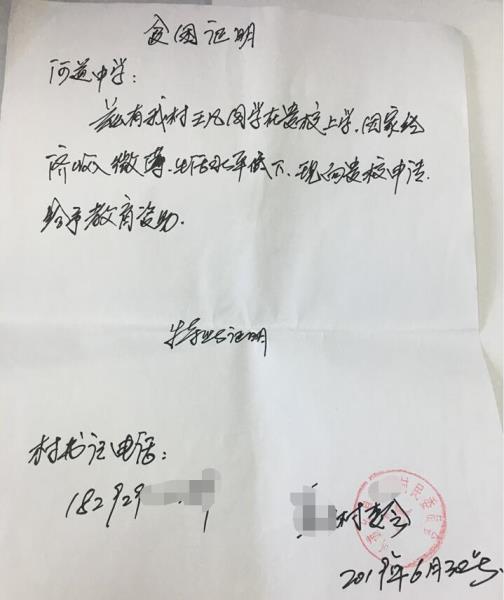 贫困证明
河道中学：
兹有我村王凡同学在贵校上学，因家经
济收入微薄、生活水平低下、现向贵校申请，
给予教育资助。
特此证明
村书记电话：
182929
村委会
民委员会
2019年6月30号.